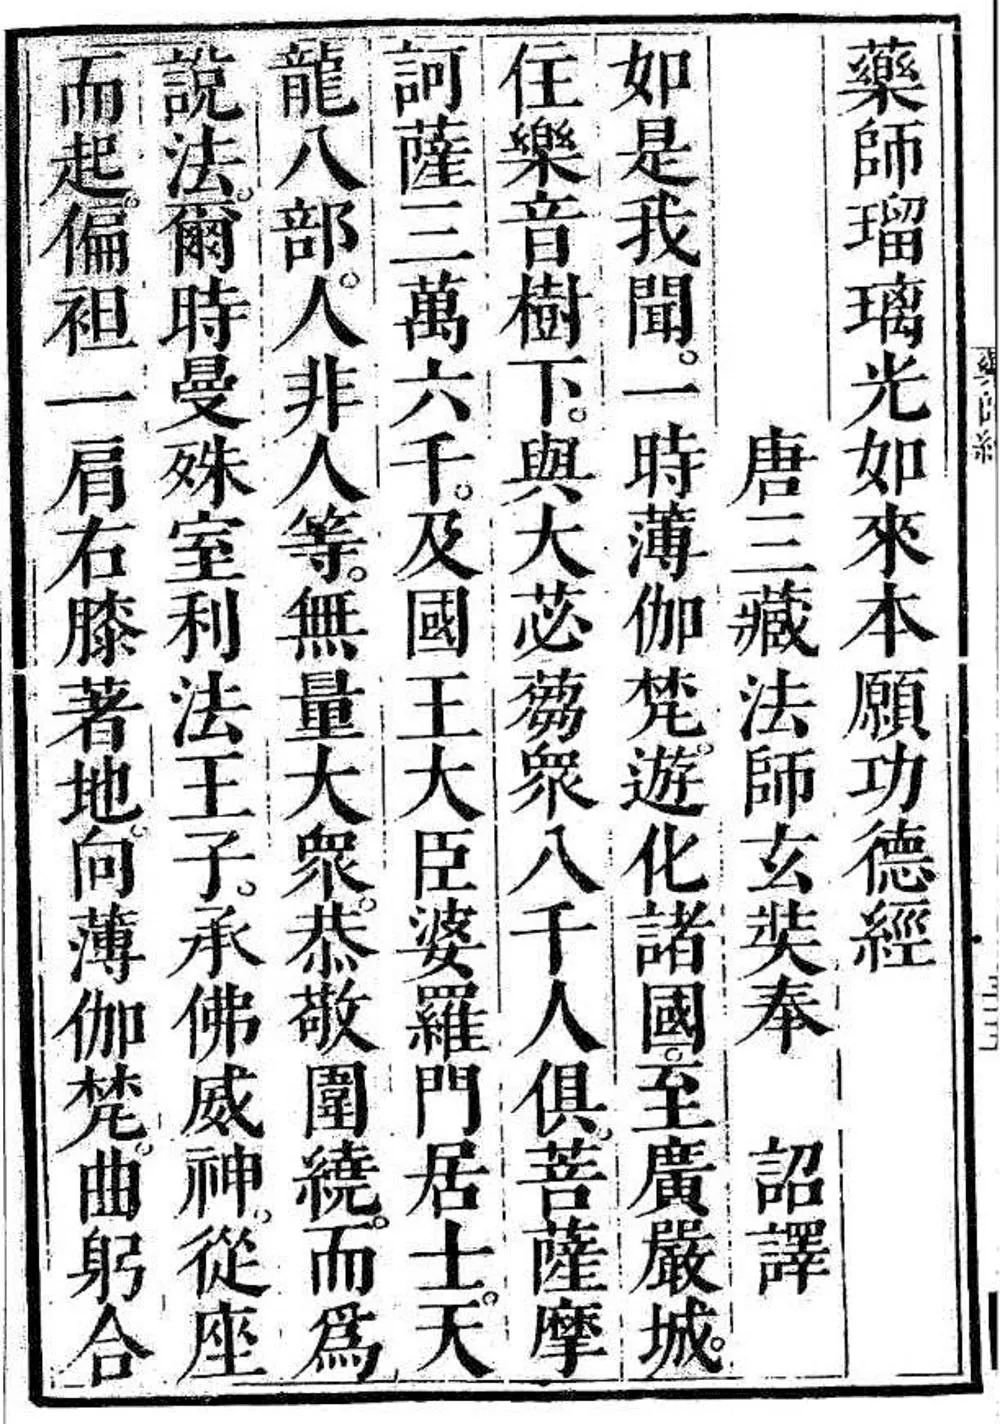 藥師瑠璃光如來本願功德經
唐三藏法師玄奘奉　詔譯
如是我聞。一時薄伽梵。遊化諸國。至廣嚴城。
住樂音樹下。與大苾蒭眾八千人俱。菩薩摩
訶薩三萬六千。及國王大臣婆羅門居士。天
龍八部。人非人等。無量大眾。恭敬圍繞。而爲
說法。爾時曼殊室利法王子。承佛威神。從座
而起。偏袒一肩右膝著地。向薄伽梵。曲躬合